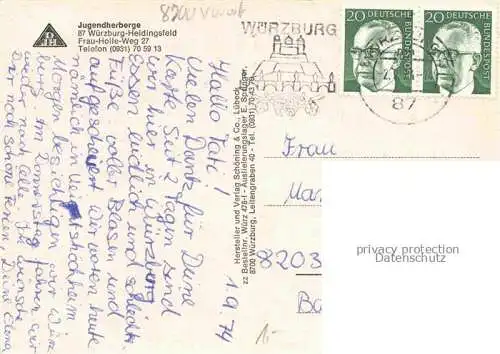 Jugendherberge
87 Würzburg-Heidingsfeld
Frau-Holle-Weg 27
Telefon (0931) 70 59 13
8700
WÜRZBURG
20 DEUTSCHE BUNDESPOST
20 DEUTSCHE BUNDESPOST
87
1.9.74
Hallo Tati!
Vielen Dank für Deine
Karte. Seit 2 Tagen sind
wir hier in Würzburg.
Essen endlich und schlecht.
Füße voller Blasen und
aufgescheuert. Wir waren heute
nämlich in Veitshöchheim.
Morgen besichtigen wir Würz
burg. Am Donnerstag fahren wir
weiter nach Alle. Ich wünsche
Dir noch schöne Ferien, Deine Elena
Hersteller und Verlag Schöning & Co., Lübeck
zz Bestellnr. Würz 478-I - Auslieferungslager E. Springer
8700 Würzburg, Leitengraben 40 - Tel. (0931)
Frau
Mar
8203
privacy protection
Dadmat.com